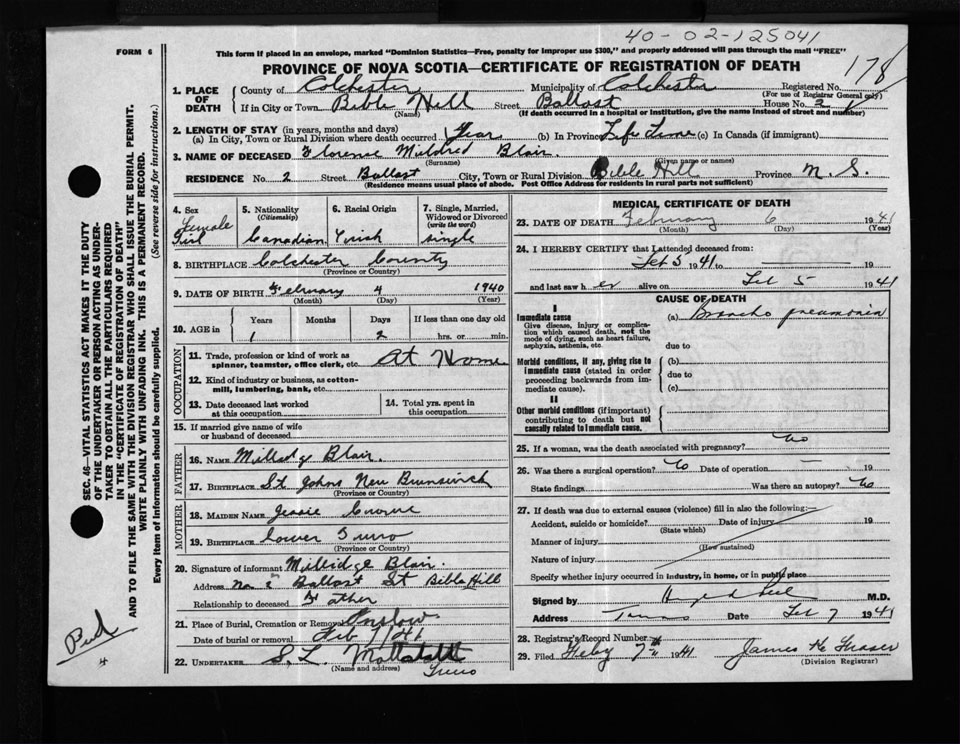 40-02-125041
FORM 6
This form if placed in an envelope, marked "Dominion Statistics—Free, penalty for improper use $300," and properly addressed will pass through the mail "FREE"
PROVINCE OF NOVA SCOTIA—CERTIFICATE OF REGISTRATION OF DEATH
178
1. PLACE OF DEATH
County of Colchester Municipality of Colchester Registered No.
(For use of Registrar General only)
If in City or Town Bible Hill Street Ballast House No. 2
(Name) (If death occurred in a hospital or institution, give the name instead of street and number)
2. LENGTH OF STAY (in years, months and days)
(a) In City, Town or Rural Division where death occurred Year (b) In Province Life Time (c) In Canada (if immigrant)
3. NAME OF DECEASED Florence Mildred Blair
(Surname) (Given name or names)
RESIDENCE No. 2 Street Ballast City, Town or Rural Division Bible Hill Province N.S.
(Residence means usual place of abode. Post Office Address for residents in rural parts not sufficient)
4. Sex Female Girl
5. Nationality (Citizenship) Canadian
6. Racial Origin Irish
7. Single, Married, Widowed or Divorced (write the word) single
8. BIRTHPLACE Colchester County
(Province or Country)
9. DATE OF BIRTH February 4 1940
(Month) (Day) (Year)
10. AGE in Years Months Days If less than one day old
1 2 hrs. or min.
OCCUPATION
11. Trade, profession or kind of work as spinner, teamster, office clerk, etc. At Home
12. Kind of industry or business, as cotton-mill, lumbering, bank, etc.
13. Date deceased last worked at this occupation
14. Total yrs. spent in this occupation
15. If married give name of wife or husband of deceased
FATHER
16. NAME Millidge Blair.
17. BIRTHPLACE St Johns New Brunswick
(Province or Country)
MOTHER
18. MAIDEN NAME Jessie Crowe
19. BIRTHPLACE Lower Truro
(Province or Country)
20. Signature of informant Millidge Blair.
Address No. 2 Ballast St Bible Hill
Relationship to deceased Father
21. Place of Burial, Cremation or Removal Onslow
Date of burial or removal Feb 7/41
22. UNDERTAKER S. L. Mattatall
(Name and address) Truro
MEDICAL CERTIFICATE OF DEATH
23. DATE OF DEATH February 6 1941
(Month) (Day) (Year)
24. I HEREBY CERTIFY that I attended deceased from:
Feb 5 1941 to 19
and last saw her alive on Feb 5 1941
CAUSE OF DEATH
I
Immediate cause
Give disease, injury or complication which caused death, not the mode of dying, such as heart failure, asphyxia, asthenia, etc.
(a) Broncho pneumonia
due to
Morbid conditions, if any, giving rise to immediate cause (stated in order proceeding backwards from immediate cause).
(b)
due to
(c)
II
Other morbid conditions (if important) contributing to death but not causally related to immediate cause.
25. If a woman, was the death associated with pregnancy? No
26. Was there a surgical operation? No Date of operation — 19
State findings Was there an autopsy? No
27. If death was due to external causes (violence) fill in also the following:—
Accident, suicide or homicide? Date of injury 19
(State which)
Manner of injury
(How sustained)
Nature of injury
Specify whether injury occurred in industry, in home, or in public place
Signed by M.D.
Address Truro Date Feb 7 1941
28. Registrar's Record Number
29. Filed Feby 7th 1941 James K Fraser
(Division Registrar)
SEC. 46—VITAL STATISTICS ACT MAKES IT THE DUTY
OF THE UNDERTAKER OR PERSON ACTING AS UNDER-
TAKER TO OBTAIN ALL THE PARTICULARS REQUIRED
IN THE "CERTIFICATE OF REGISTRATION OF DEATH"
AND TO FILE THE SAME WITH THE DIVISION REGISTRAR WHO SHALL ISSUE THE BURIAL PERMIT.
WRITE PLAINLY WITH UNFADING INK. THIS IS A PERMANENT RECORD.
Every item of information should be carefully supplied. (See reverse side for instructions.)